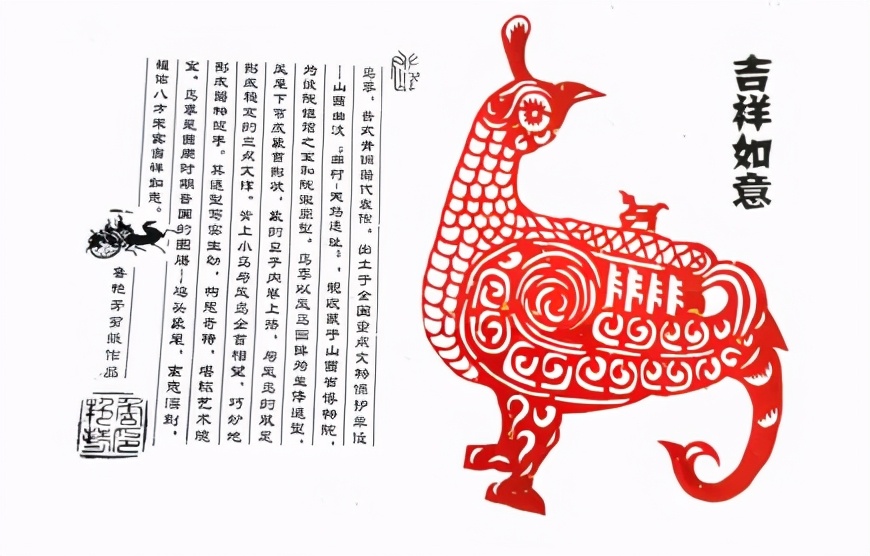 吉祥如意
鸟尊，晋式青铜器代表作。出土于全国重点文物保护单位
—山西曲沃“曲村—天马遗址”，现收藏于山西省博物院，
为该院镇馆之宝和院徽原型。鸟尊以凤鸟回眸为主体造型，
凤尾下弯成象首形状，象的鼻子内卷上扬，与凤鸟的双足
形成稳定的三点支撑。背上小鸟与凤鸟全首相望，巧妙地
形成器物捉手。其造型写实生动，构思奇特，堪称艺术瑰
宝。鸟尊是西周时期晋国的图腾—鸟头象尾，寓意深刻，
祝他八方来宾吉祥如意。
鲁艳芳剪纸作品